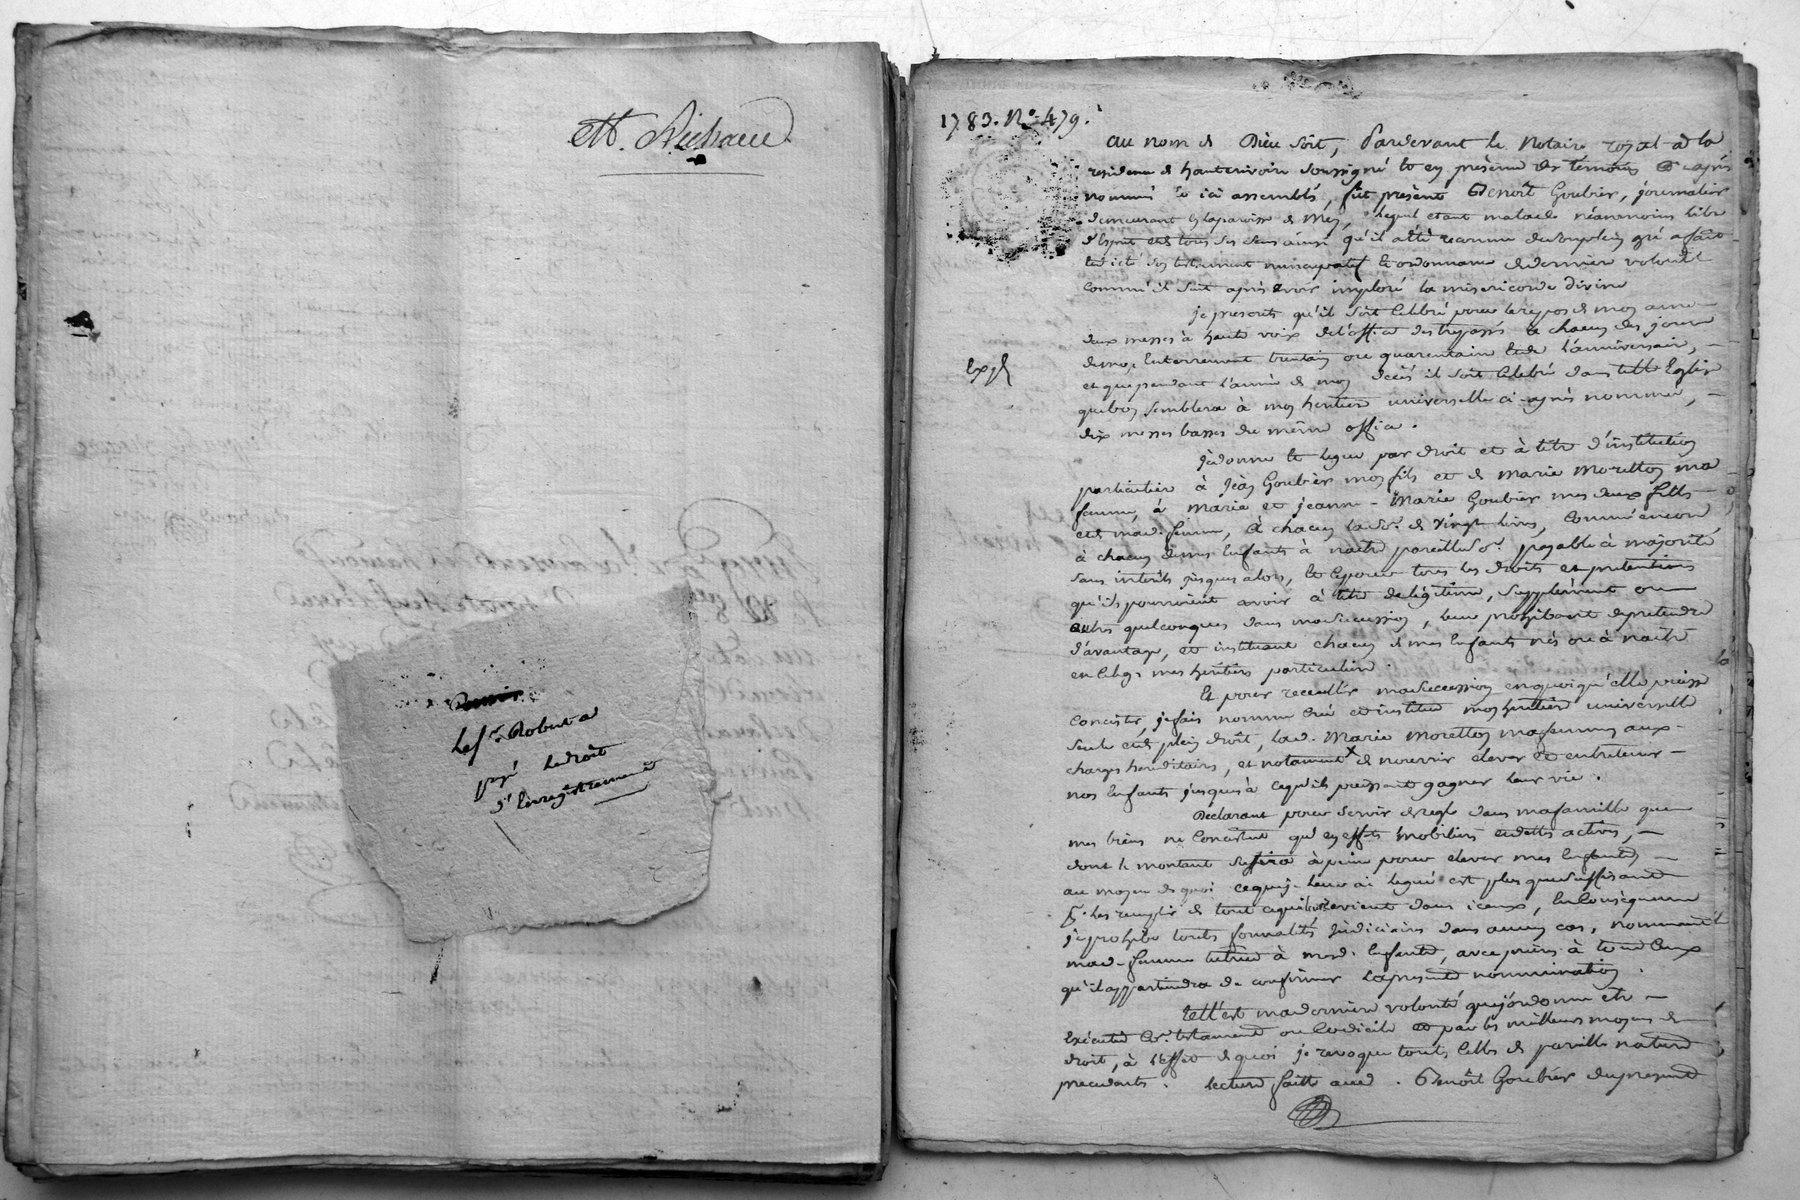 M. Richard
Le Sr. Robert a
payé le droit
d'Enregistrement
1783. No. 479.
Au nom de Dieu soit, Pardevant le Notaire royal à la
residence de hauterivoire soussigné et en présence des témoins cy après
nommés et ici assemblés, fût présent Benoît Goubier, journalier
demeurant en la paroisse de Mey, lequel etant malade néanmoins libre
d'Esprit et de tous ses sens ainsi qu'il a été reconnu de son plein gré a fait
et dicté son testament nuncupatif et ordonnance de derniere volonté
comme il suit après avoir imploré la misericorde divine
je prescrits qu'il soit celebré pour le repos de mon ame
deux messes à haute voix de l'office des trepassés et chacun des jours
de mon Enterrement trentain ou quarantain et de l'anniversaire,
et que pendant l'année de mon décès il soit celebré dans telle Eglise
Expé
que bon semblera à mon heritiere universelle ci-après nommée,
dix messes basses du même office.
Je donne et legue par droit et à titre d'institution
particuliere à Jean Goubier mon fils et de Marie Moretton ma
femme, à Marie et jeanne-Marie Goubier mes deux filles
et de mad. femme, à chacun la so. de vingt livres, comme encore
à chacun de mes Enfants à naitre pareille so. payable à majorité
sans intérêts jusques alors, et ce pour tous les droits et pretentions
qu'ils pourroient avoir à titre de légitime, supplément ou
autres quelconques dans ma succession, leur prohibant de pretendre
d'avantage, et instituant chacun de mes Enfants nés ou à naitre
en ce legs mes heritiers particuliers.
Et pour recueillir ma succession en quoi qu'elle puisse
consister, je fais nomme crée et institue mon heritiere universelle
seule et de plein droit, lad. Marie Moretton ma femme aux
charges hereditaires, et notament de nourrir elever et entretenir
nos Enfants jusqu'à ce qu'ils puissent gagner leur vie.
Déclarant pour servir de regle dans ma famille que
mes biens ne consistent qu'en effets mobiliers et dettes actives,
dont le montant suffira à peine pour elever mes Enfants
au moyen de quoi ce que je leur ai legué est plus que suffisant
pr. les remplir de tout ce qui leur revient dans iceux, En conséquence
je prohibe toutes formalités judiciaires dans aucun cas, nommant
mad. femme tutrice à mesd. Enfants, avec prières à tous ceux
qu'il appartiendra de confirmer la presente nomination.
telle est ma derniere volonté que j'ordonne etre
Exécutée par testament ou codicile et par les meilleurs moyens de
droit, à l'effet de quoi je revoque toutes celles de pareille nature
precedentes. Lecture faitte aud. Benoît Goubier du present